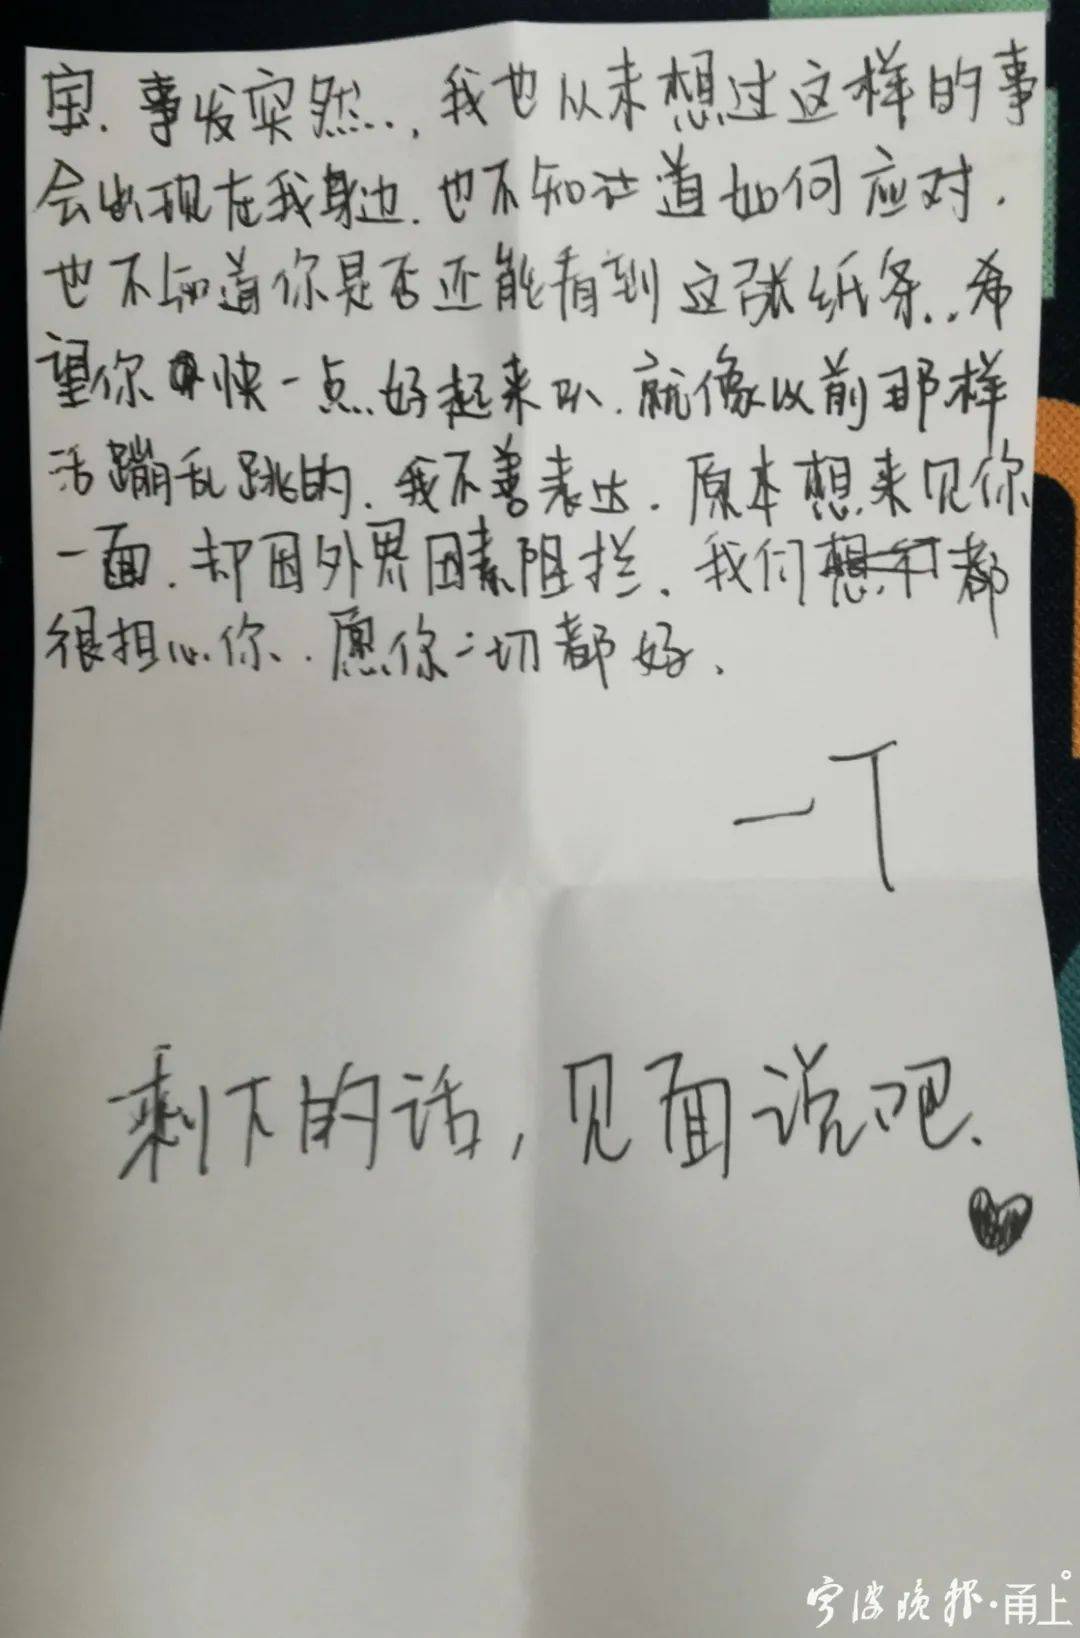 宝.事发突然..,我也从未想过这样的事
会出现在我身边.也不知道如何应对.
也不知道你是否还能看到这张纸条..希
望你快一点好起来叭.就像以前那样
活蹦乱跳的.我不善表达.原本想来见你
一面.却因外界因素阻拦.我们都
很担心你..愿你一切都好.
一丁
剩下的话,见面说吧.
宁波晚报·甬上